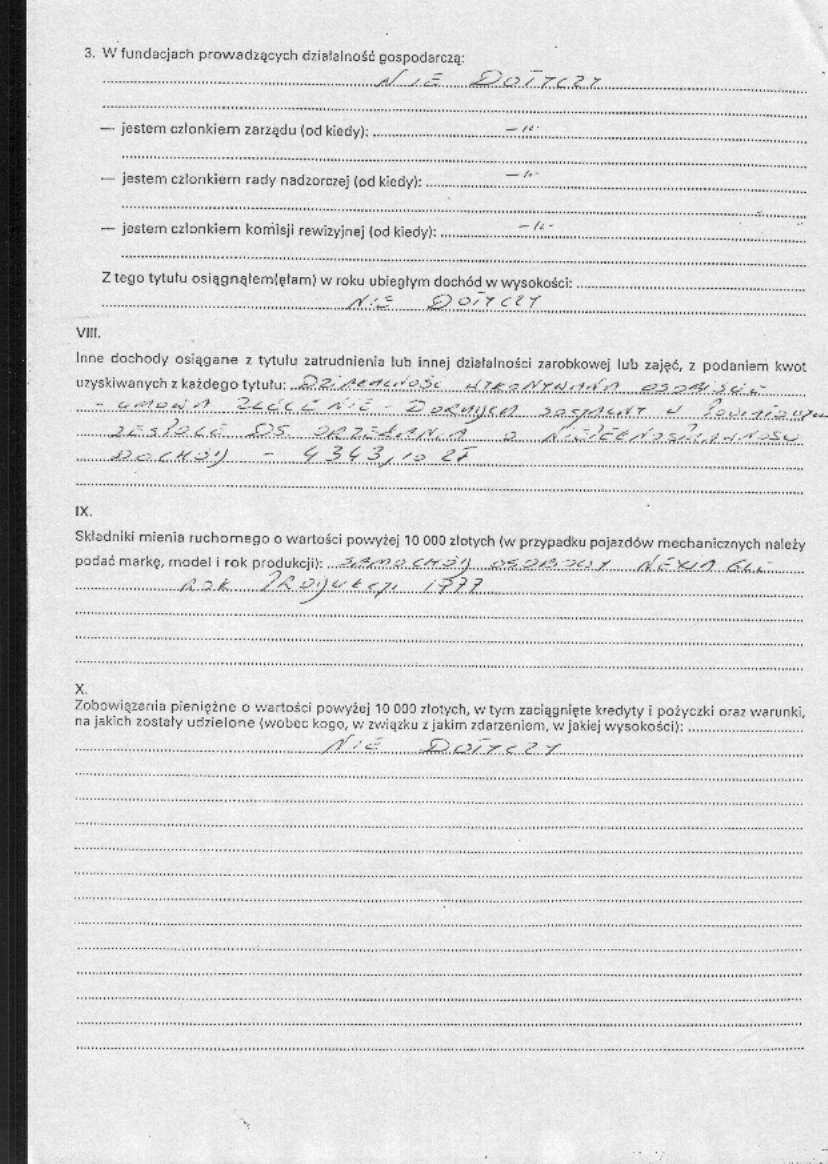 3. W fundacjach prowadzących działalność gospodarczą:
NIE DOTYCZY
— jestem członkiem zarządu (od kiedy):
— jestem członkiem rady nadzorczej (od kiedy):
— jestem członkiem komisji rewizyjnej (od kiedy):
Z tego tytułu osiągnąłem(ęłam) w roku ubiegłym dochód w wysokości:
NIE DOTYCZY
VIII.
Inne dochody osiągane z tytułu zatrudnienia lub innej działalności zarobkowej lub zajęć, z podaniem kwot
uzyskiwanych z każdego tytułu: DZIAŁALNOŚĆ WYKONYWANA OSOBIŚCIE
- UMOWA ZLECENIE - DORADCA SOCJALNY W POWIATOWYM
ZESPOLE DS. ORZEKANIA O NIEPEŁNOSPRAWNOŚCI
DOCHÓD - 4343,10 ZŁ
IX.
Składniki mienia ruchomego o wartości powyżej 10 000 złotych (w przypadku pojazdów mechanicznych należy
podać markę, model i rok produkcji): SAMOCHÓD OSOBOWY NEXIA
ROK PRODUKCJI
X.
Zobowiązania pieniężne o wartości powyżej 10 000 złotych, w tym zaciągnięte kredyty i pożyczki oraz warunki,
na jakich zostały udzielone (wobec kogo, w związku z jakim zdarzeniem, w jakiej wysokości):
NIE DOTYCZY